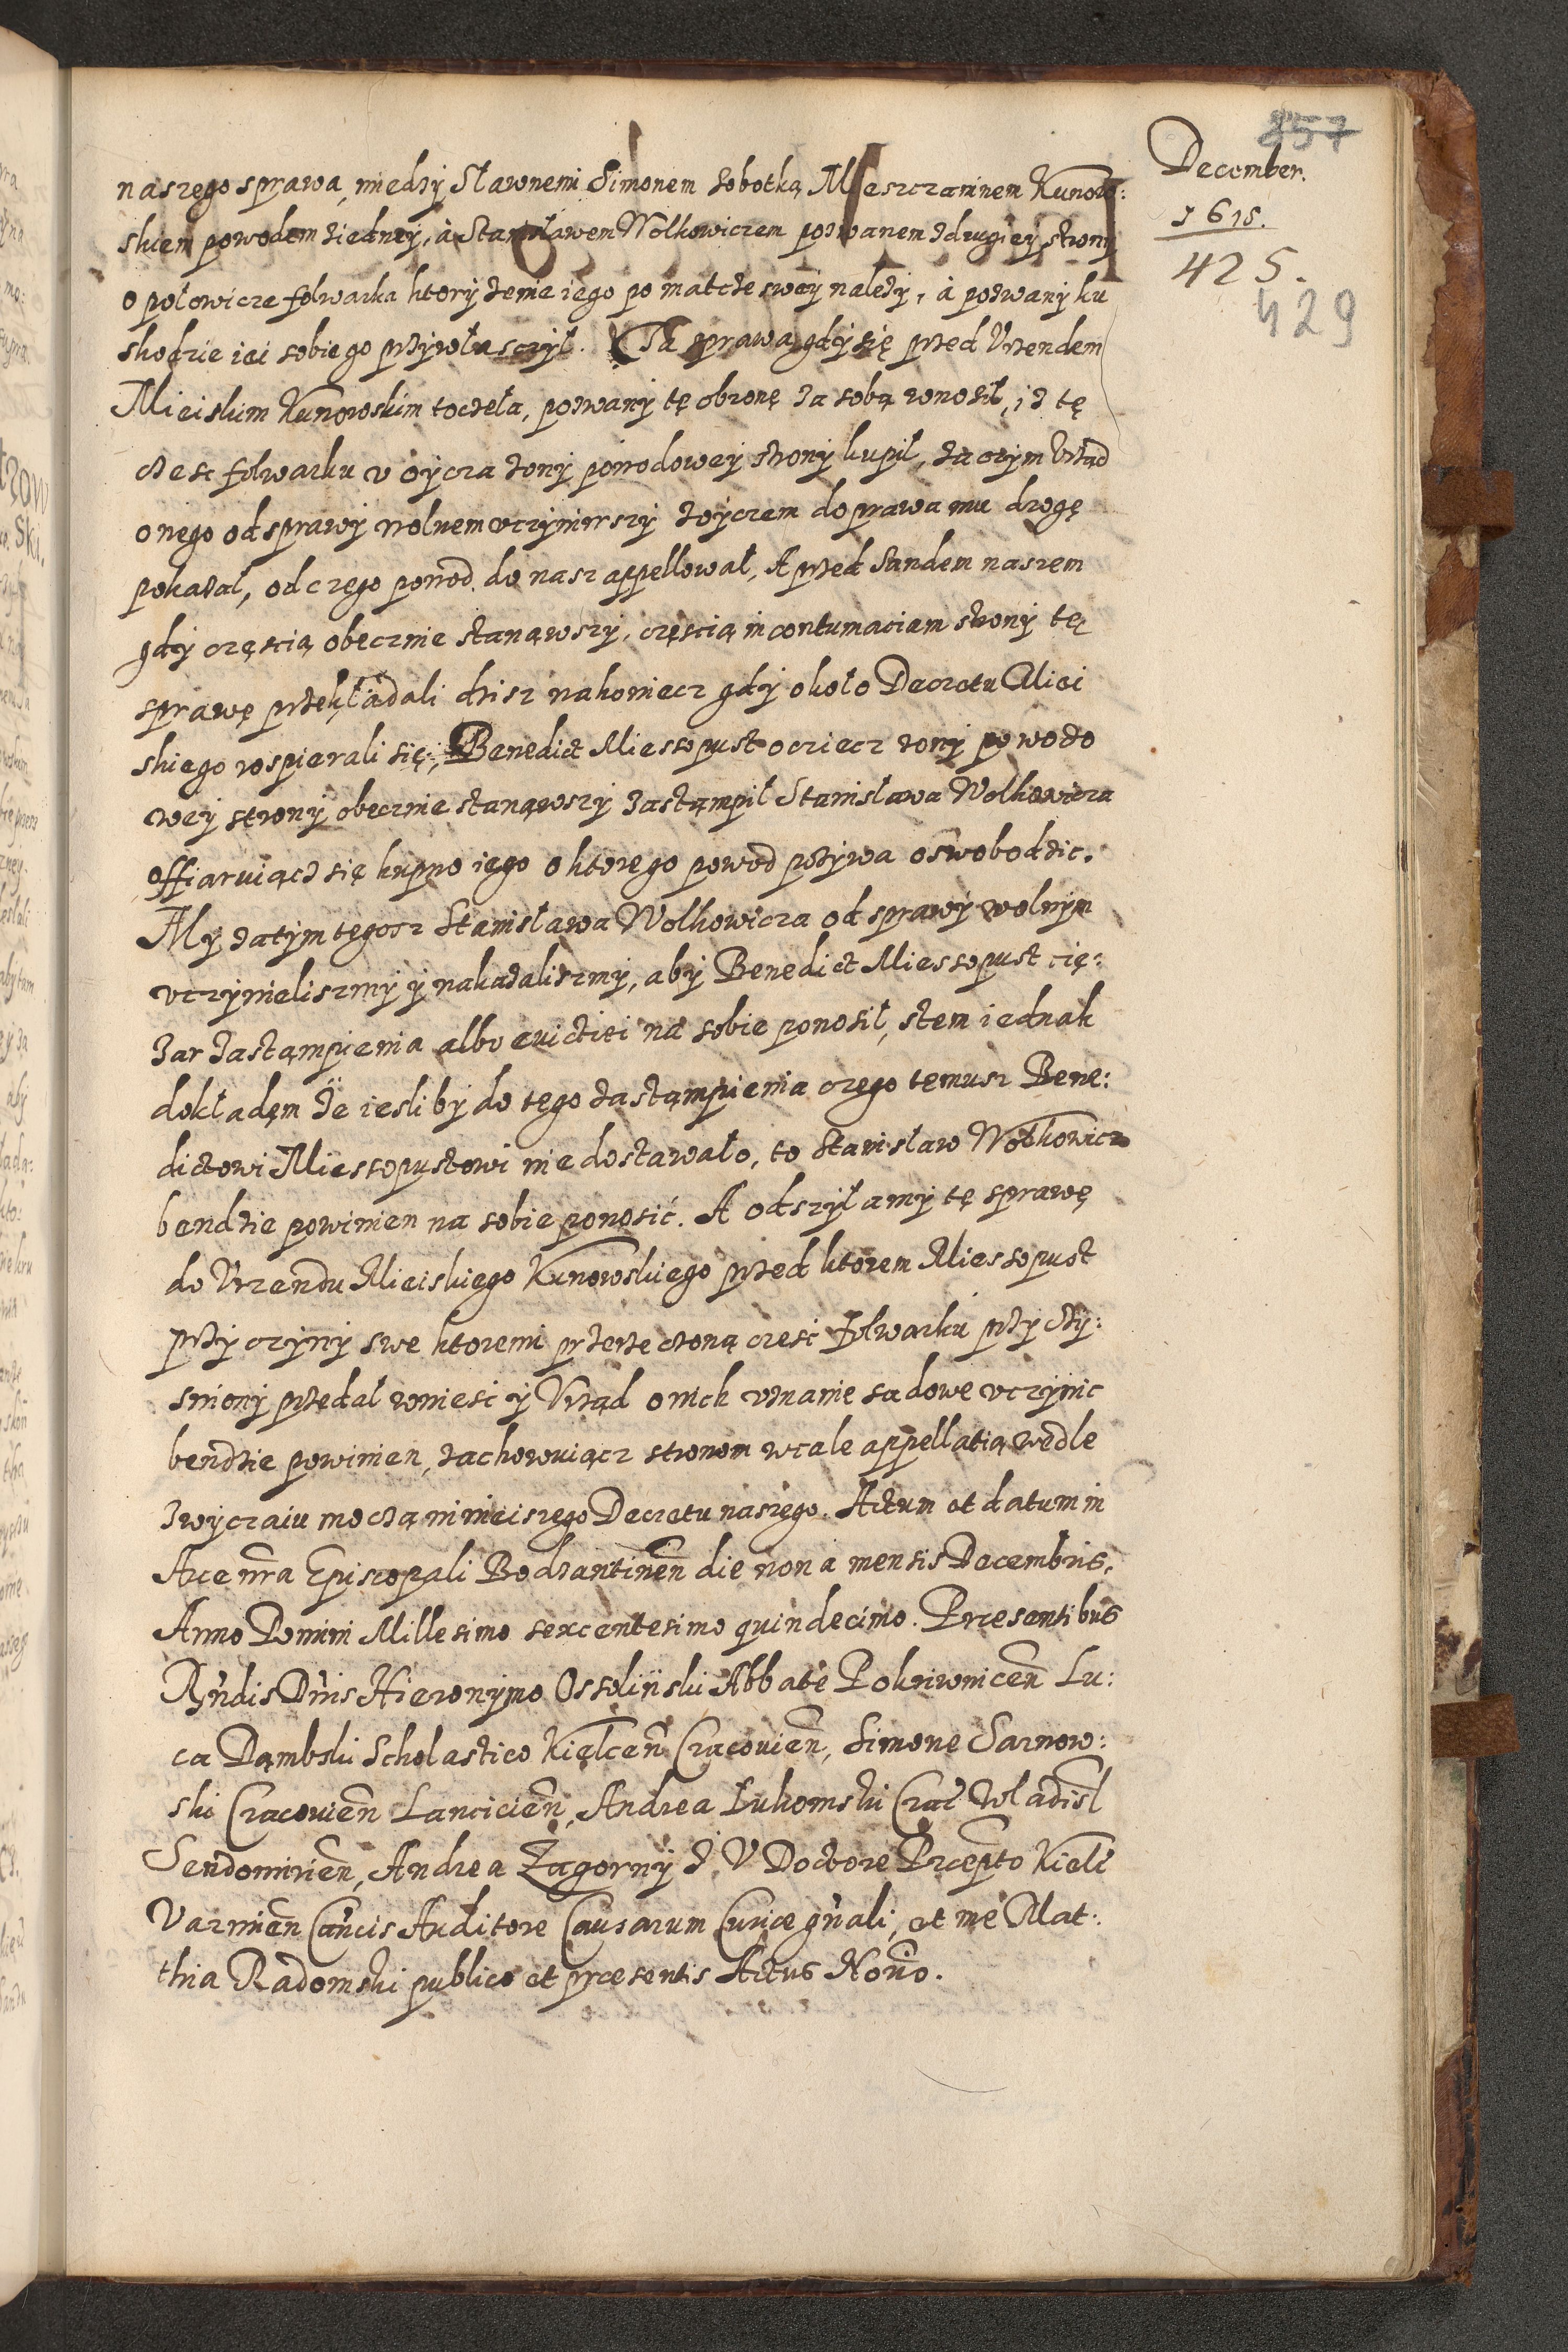 857
December.
1615.
425.
429
naszego sprawa, miedzy Sławnemi Simonem Sobotką Mieszczaninem Kunow:
skiem powodem ziedney, à Stanisławem Wolkowiczem pozwanem zdrugiey strony
o połowicze folwarka ktory zenie iego po matcze swey należy, à pozwany ku
skodzie iei sobie go przywłasczył. Ta sprawa gdy się przed Vrzendem
Mieiskim Kunowskim toczeła, pozwany tę obronę za sobą wnosił, iż tę
częsc folwarku v oycza żony powodowey strony kupił, zaczym Vrząd
onego od sprawy wolnem vczyniwszy zoyczem do prawa mu drogę
pokazał, od czego powod do nasz appellował, A przed Sandem naszem
gdy częscią obecznie stanąwszy, częscią in contumaciam strony tę
sprawę przekładali dzisz nakoniecz gdy około Decretu Miei
skiego rospierali się, Benedict Miessopust ocziecz zony powodo
wey strony obecznie stanąwszy zastąmpil Stanisława Wolkowicza
offiaruiącz się kupno iego o ktorego powod pozywa oswobodzic.
My zatym tegosz Stanisława Wolkowicza od sprawy wolnym
vczynieliszmy y nakazaliszmy, aby Benedict Miessopust cię:
zar zastąmpienia albo euictiei na sobie ponosił, stem iednak
dokładęm że iesliby do tego zastąmpienia czego temusz Bene:
dictowi Miessopustowi nie dostawało, to Stanisław Wolkowicz
bendzie powinien na sobie ponosić. A odszyłamy tę sprawę
do Vrzendu Mieiskiego Kunowskiego przed ktorem Miessopust
przyczyny swe ktoremi przerzeczoną czesć Folwarku przyczy:
sniony przedał wniesć y Vrząd o nich vznanie sadowe vczynic
bendzie powinien, zachowuiącz stronom wcale appellatią wedle
zwyczaiu moczą ninieiszego Decretu naszego. Actum et datum in
Arce nra Episcopali Bodzantinen̄ die nona mensis Decembris,
Anno Domini Millesimo sexcentesimo quindecimo. Præsentibus
Rn̄dis Dn̄is Hieronymo Ossoliński Abbate Pokriwnicen̄ Lu:
ca Dąmbski Scholastico Kielcen̄ Cracouien̄, Simone Sarnow:
ski Cracouien̄ Lancicien̄, Andrea Łukomski Crac̄ Wladisl̄
Sendomirien̄, Andrea Zagorny J. V Doctore Præpto Kielc̄
Varmien̄ Can̄cis Auditore Causarum Curiæ gn̄ali, et me Mat:
thia Radomski publico et præsentis Actus Nōrio.